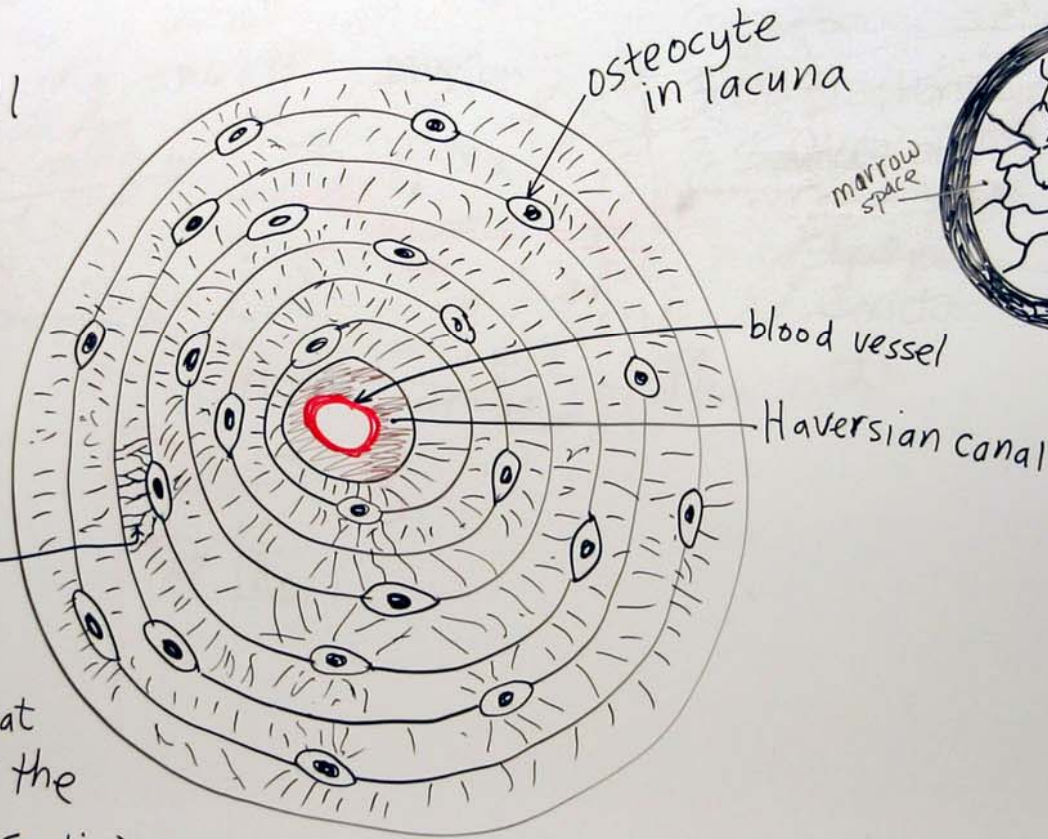 osteocyte
in lacuna
marrow
space
blood vessel
Haversian canal
at
the